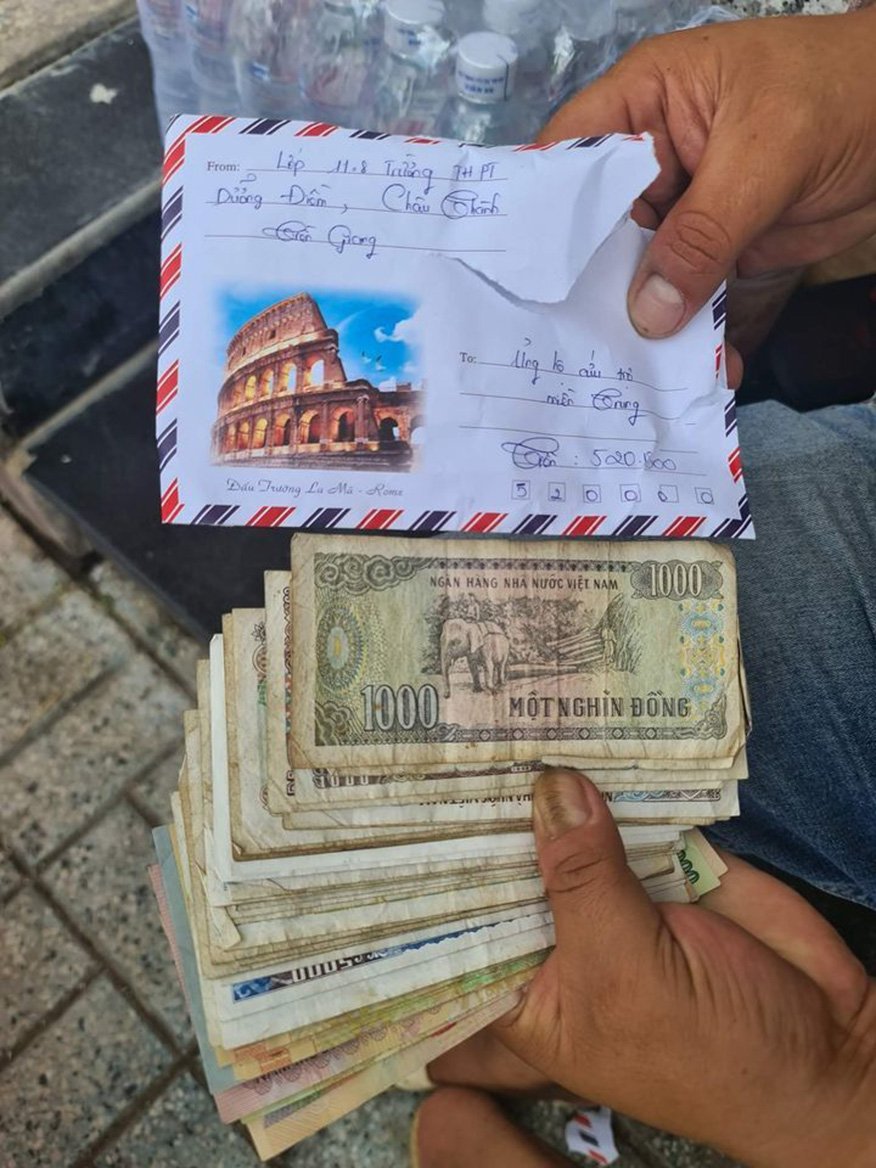 From: Lớp 11.8 Trường THPT
Dưỡng Điềm, Châu Thành
Tiền Giang
To: Ủng hộ cứu trợ
miền Trung
Tiền: 520.000
5 2 0 0 0 0
Đấu Trường La Mã - Rome
NGÂN HÀNG NHÀ NƯỚC VIỆT NAM
1000
1000
MỘT NGHÌN ĐỒNG
5000